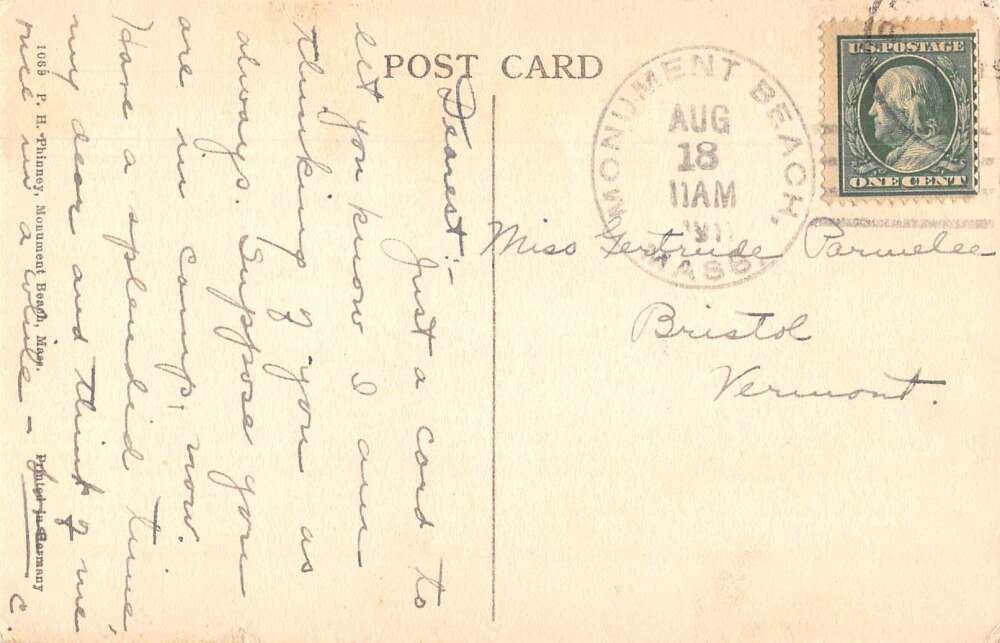 POST CARD
Dearest:-
Just a card to
let you know I am
thinking of you as
always. Suppose you
are in camp, now.
Have a splendid time,
my dear and think of me
once in a while –
C.
1069 P. H. Phinney, Monument Beach, Mass. Printed in Germany
MONUMENT BEACH,
MASS.
AUG
18
11AM
U.S. POSTAGE
ONE CENT
Miss Gertrude Parmelee
Bristol
Vermont.